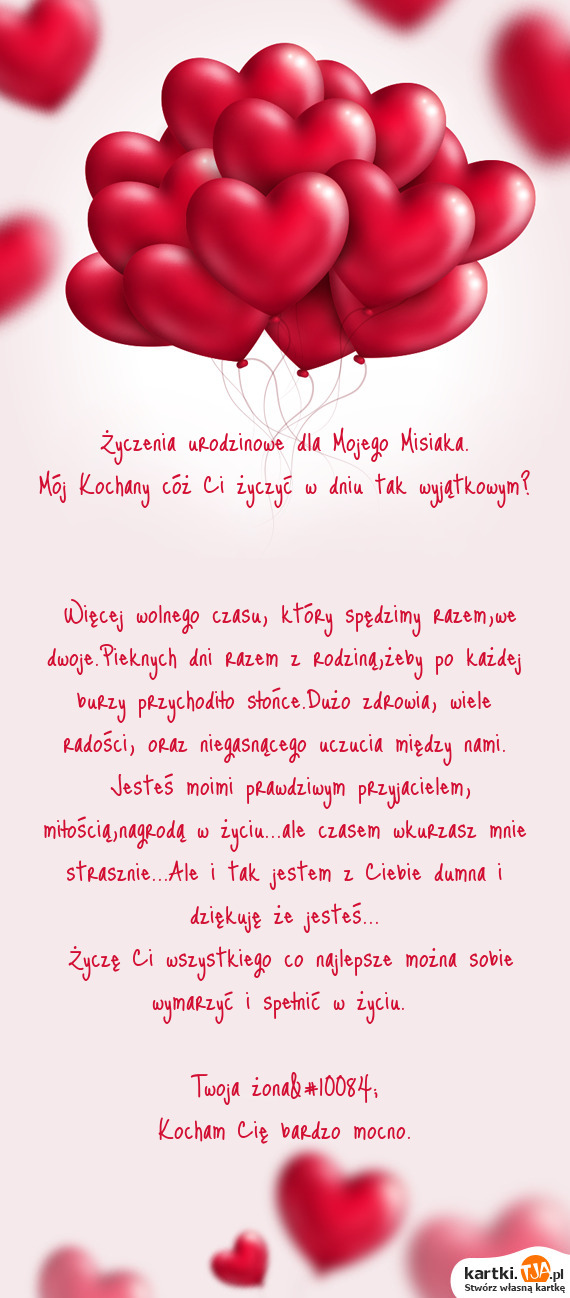 Życzenia urodzinowe dla Mojego Misiaka.
Mój Kochany cóż Ci życzyć w dniu tak wyjątkowym?
Więcej wolnego czasu, który spędzimy razem,we
dwoje.Pieknych dni razem z rodziną,żeby po każdej
burzy przychodiło słońce.Dużo zdrowia, wiele
radości, oraz niegasnącego uczucia między nami.
Jesteś moimi prawdziwym przyjacielem,
miłością,nagrodą w życiu...ale czasem wkurzasz mnie
strasznie...Ale i tak jestem z Ciebie dumna i
dziękuję że jesteś...
Życzę Ci wszystkiego co najlepsze można sobie
wymarzyć i spełnić w życiu.
Twoja żona&#10084;
Kocham Cię bardzo mocno.
kartki.TJA.pl
Stwórz własną kartkę